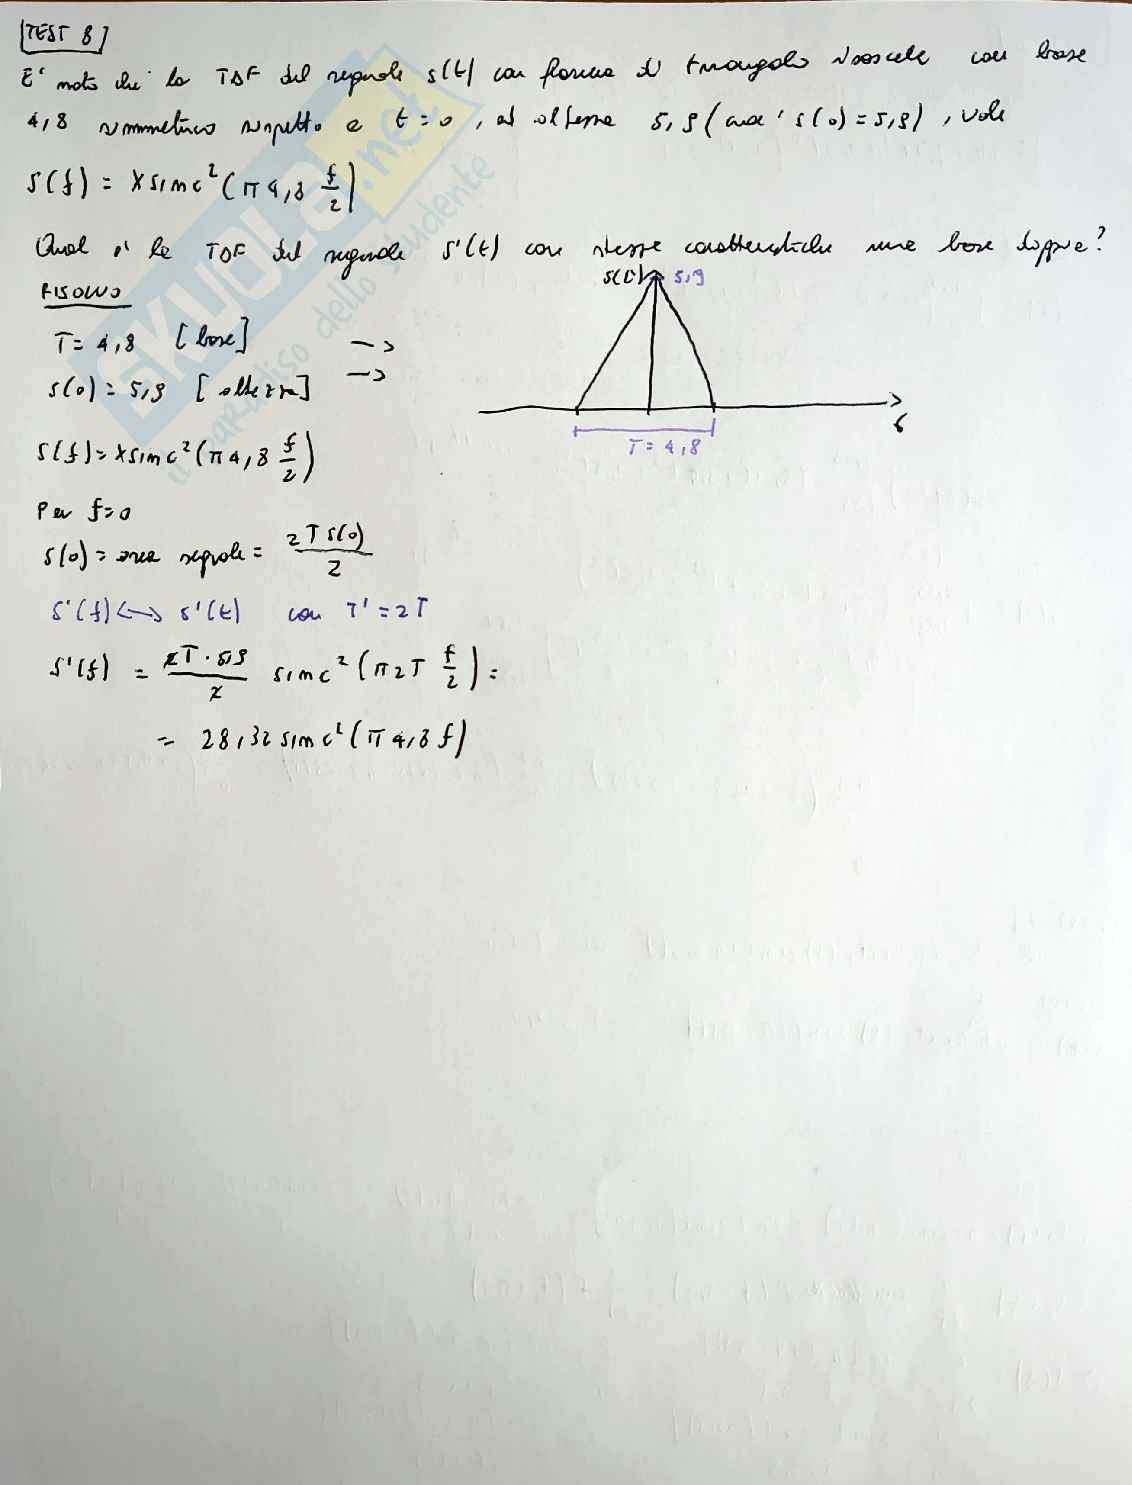 [TEST 8]
E' noto che la TDF del segnale s(t) con forma di triangolo isoscele con base
4,8 simmetrico rispetto a t=0, ed altezza 5,9 (cioe' s(0)=5,9), vale
S(f) = X sinc²(π 4,8 f/2)
Qual è la TDF del segnale s'(t) con stesse caratteristiche ma base doppia?
RISOLVO
s(t) 5,9
T = 4,8 [base] ->
s(0) = 5,9 [altezza] ->
t
T = 4,8
S(f) = X sinc²(π 4,8 f/2)
Per f=0
S(0) = area segnale = 2 T s(0) / 2
S'(f) <-> s'(t) con T' = 2T
S'(f) = 2T · 5,9 / 2 sinc²(π 2T f/2) =
= 28,32 sinc²(π 4,8 f)
SKUOLA.net
il paradiso dello studente